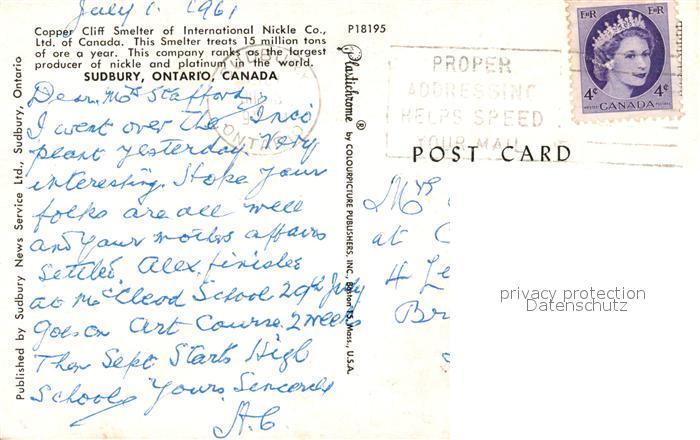 July 1. 1961
Copper Cliff Smelter of International Nickle Co.,
Ltd. of Canada. This Smelter treats 15 million tons
of ore a year. This company ranks as the largest
producer of nickle and platinum in the world.
SUDBURY, ONTARIO, CANADA
Dear Mrs Stafford,
I went over the Inco
plant yesterday. Very
interesting. Hope your
folks are all well
and your mothers affairs
settled. Alex. finishes
at McCleod School 29th July
Goes on Art Course 2 weeks
Then Sept Starts High
School. Yours Sincerely
A.C.
Published by Sudbury News Service Ltd., Sudbury, Ontario
P18195
Plastichrome ® by COLOURPICTURE PUBLISHERS, INC., Boston 15, Mass., U.S.A.
ONTARIO
PROPER
ADDRESSING
HELPS SPEED
YOUR MAIL
EIIR EIIR
4¢ 4¢
POSTES CANADA POSTAGE
POST CARD
Mrs
at
4
Br
privacy protection
Datenschutz